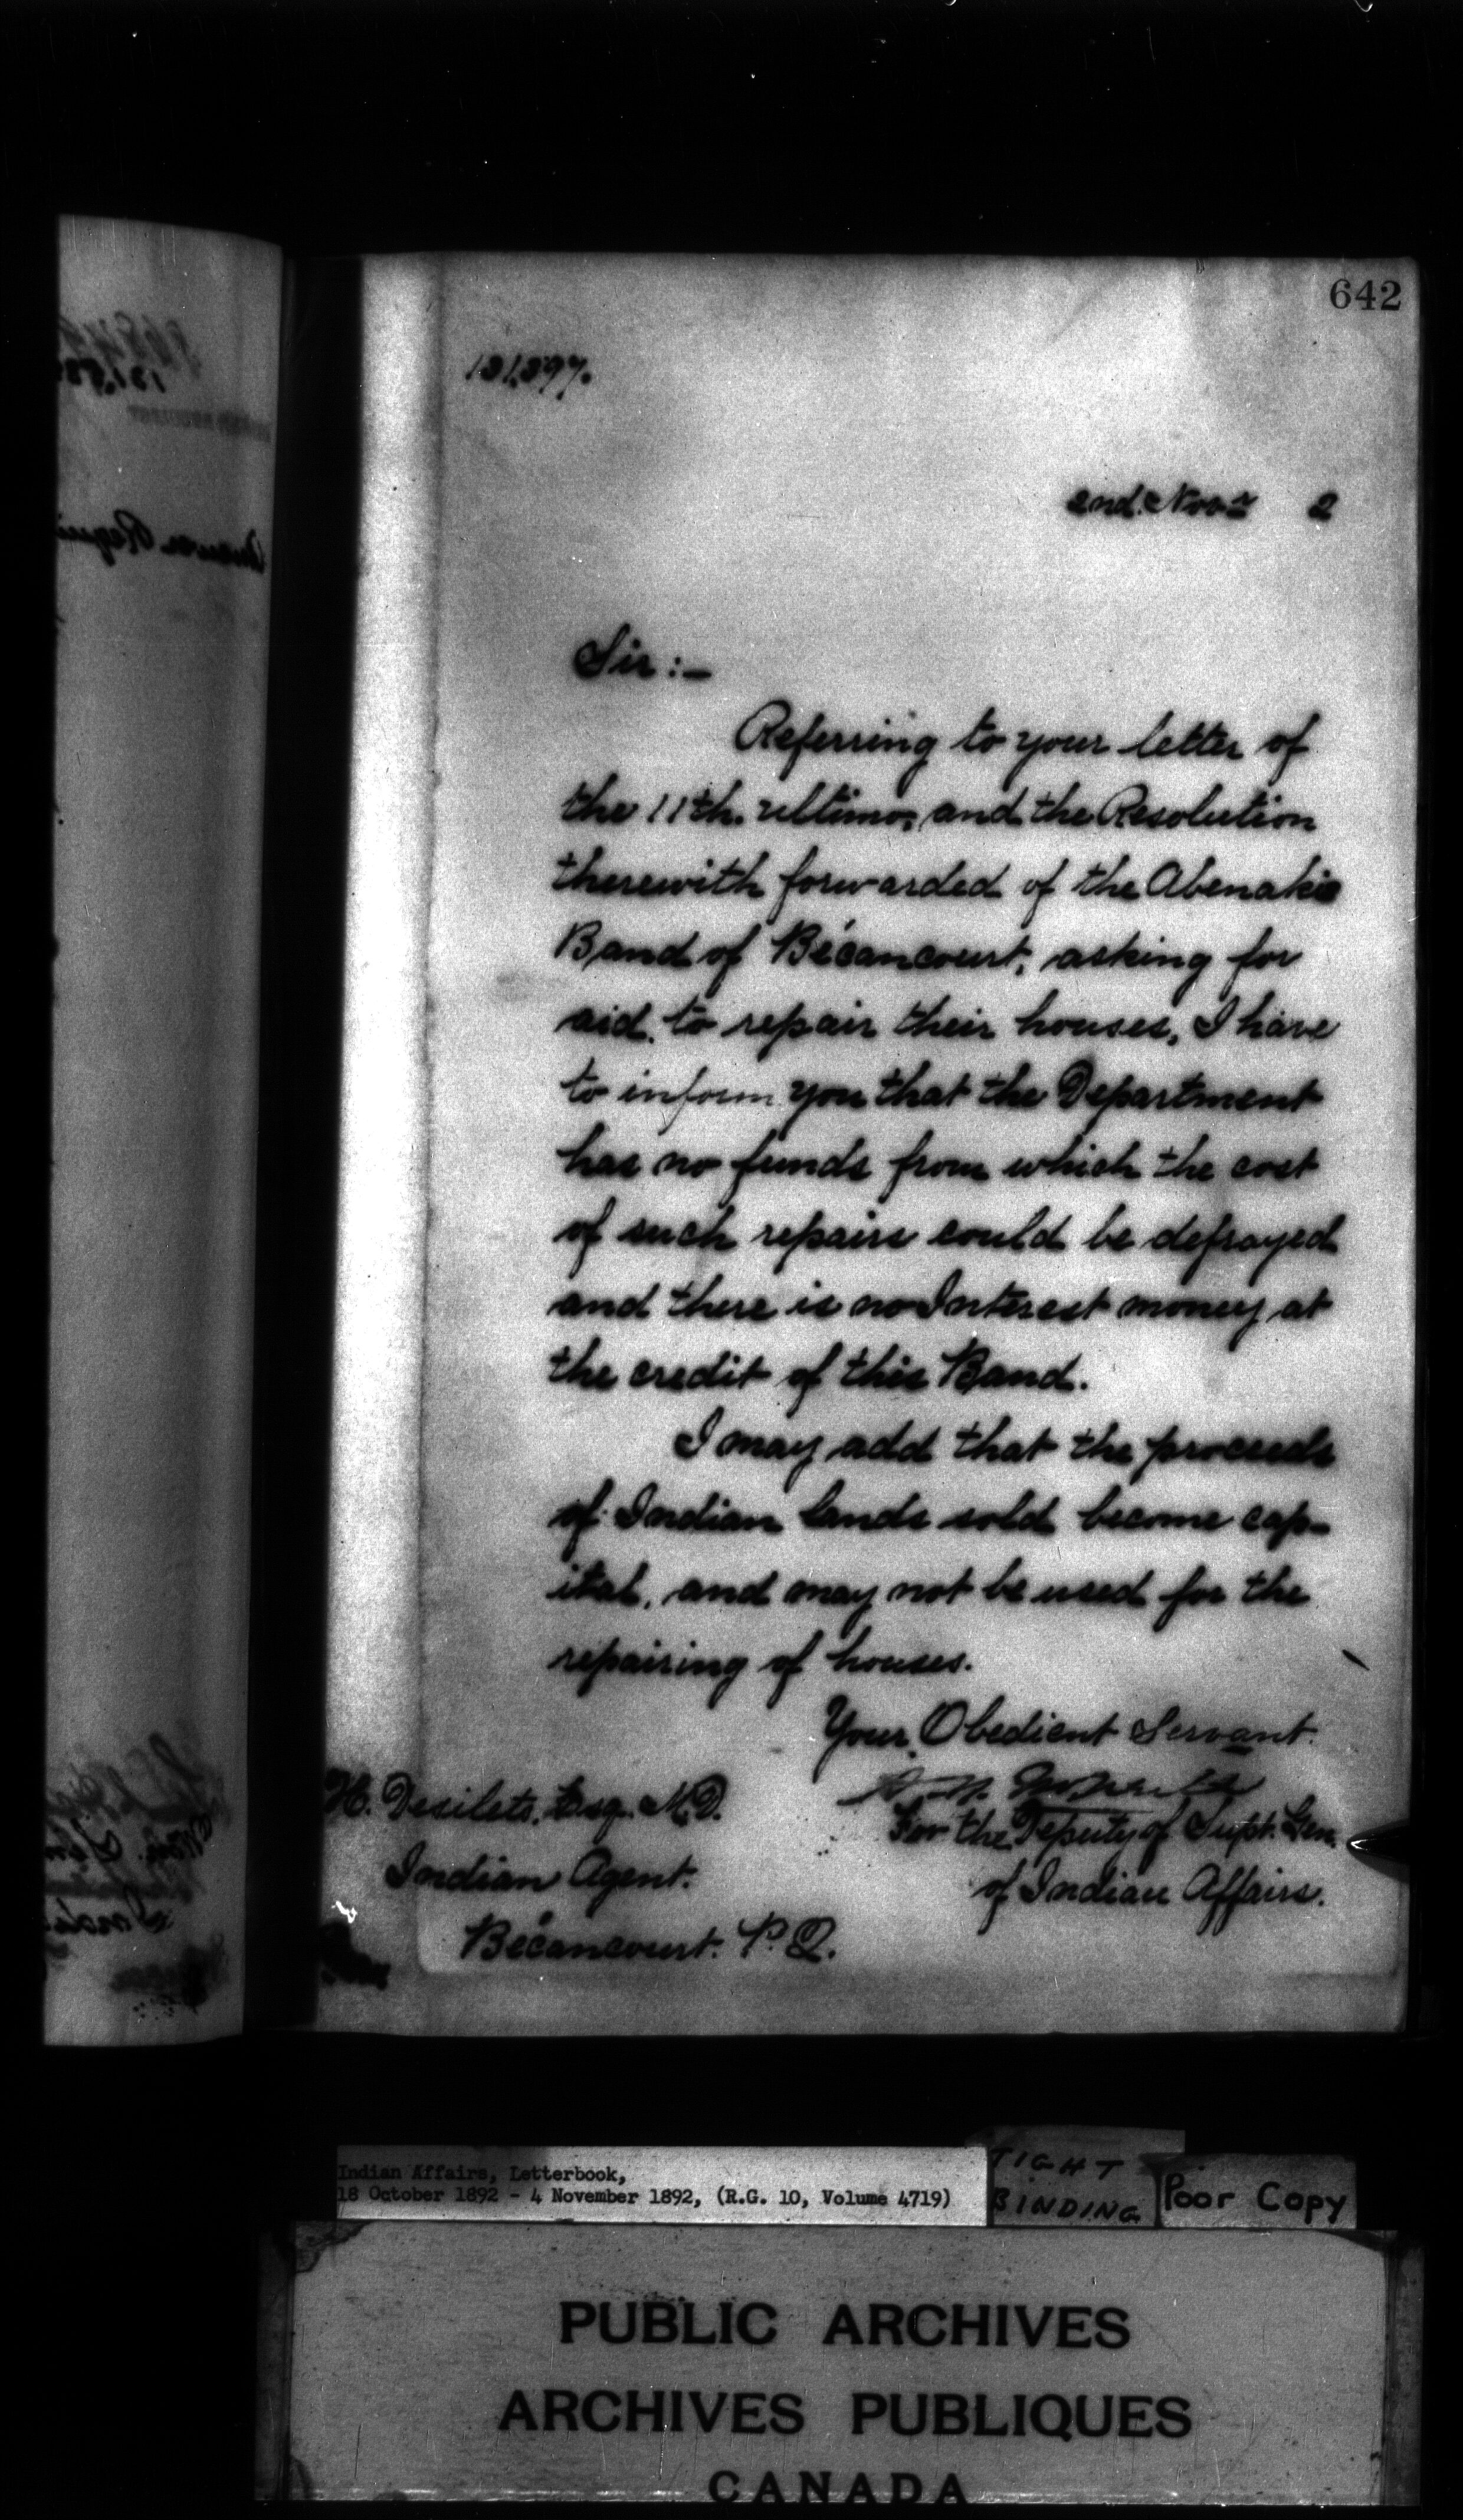 642
131,397.
2nd. Novr 2
Sir:-
Referring to your letter of
the 11th. ultimo, and the Resolution
therewith forwarded of the Abenakis
Band of Bécancourt, asking for
aid to repair their houses, I have
to inform you that the Department
has no funds from which the cost
of such repairs could be defrayed
and there is no Interest money at
the credit of this Band.
I may add that the proceeds
of Indian lands sold become cap-
ital, and may not be used for the
repairing of houses.
Your Obedient Servant.
For the Deputy of Supt. Gen.
of Indian Affairs.
H. Desilets, Esq. M.D.
Indian Agent.
Bécancourt. P.Q.
Indian Affairs, Letterbook,
18 October 1892 - 4 November 1892, (R.G. 10, Volume 4719)
TIGHT
BINDING
Poor Copy
PUBLIC ARCHIVES
ARCHIVES PUBLIQUES
CANADA